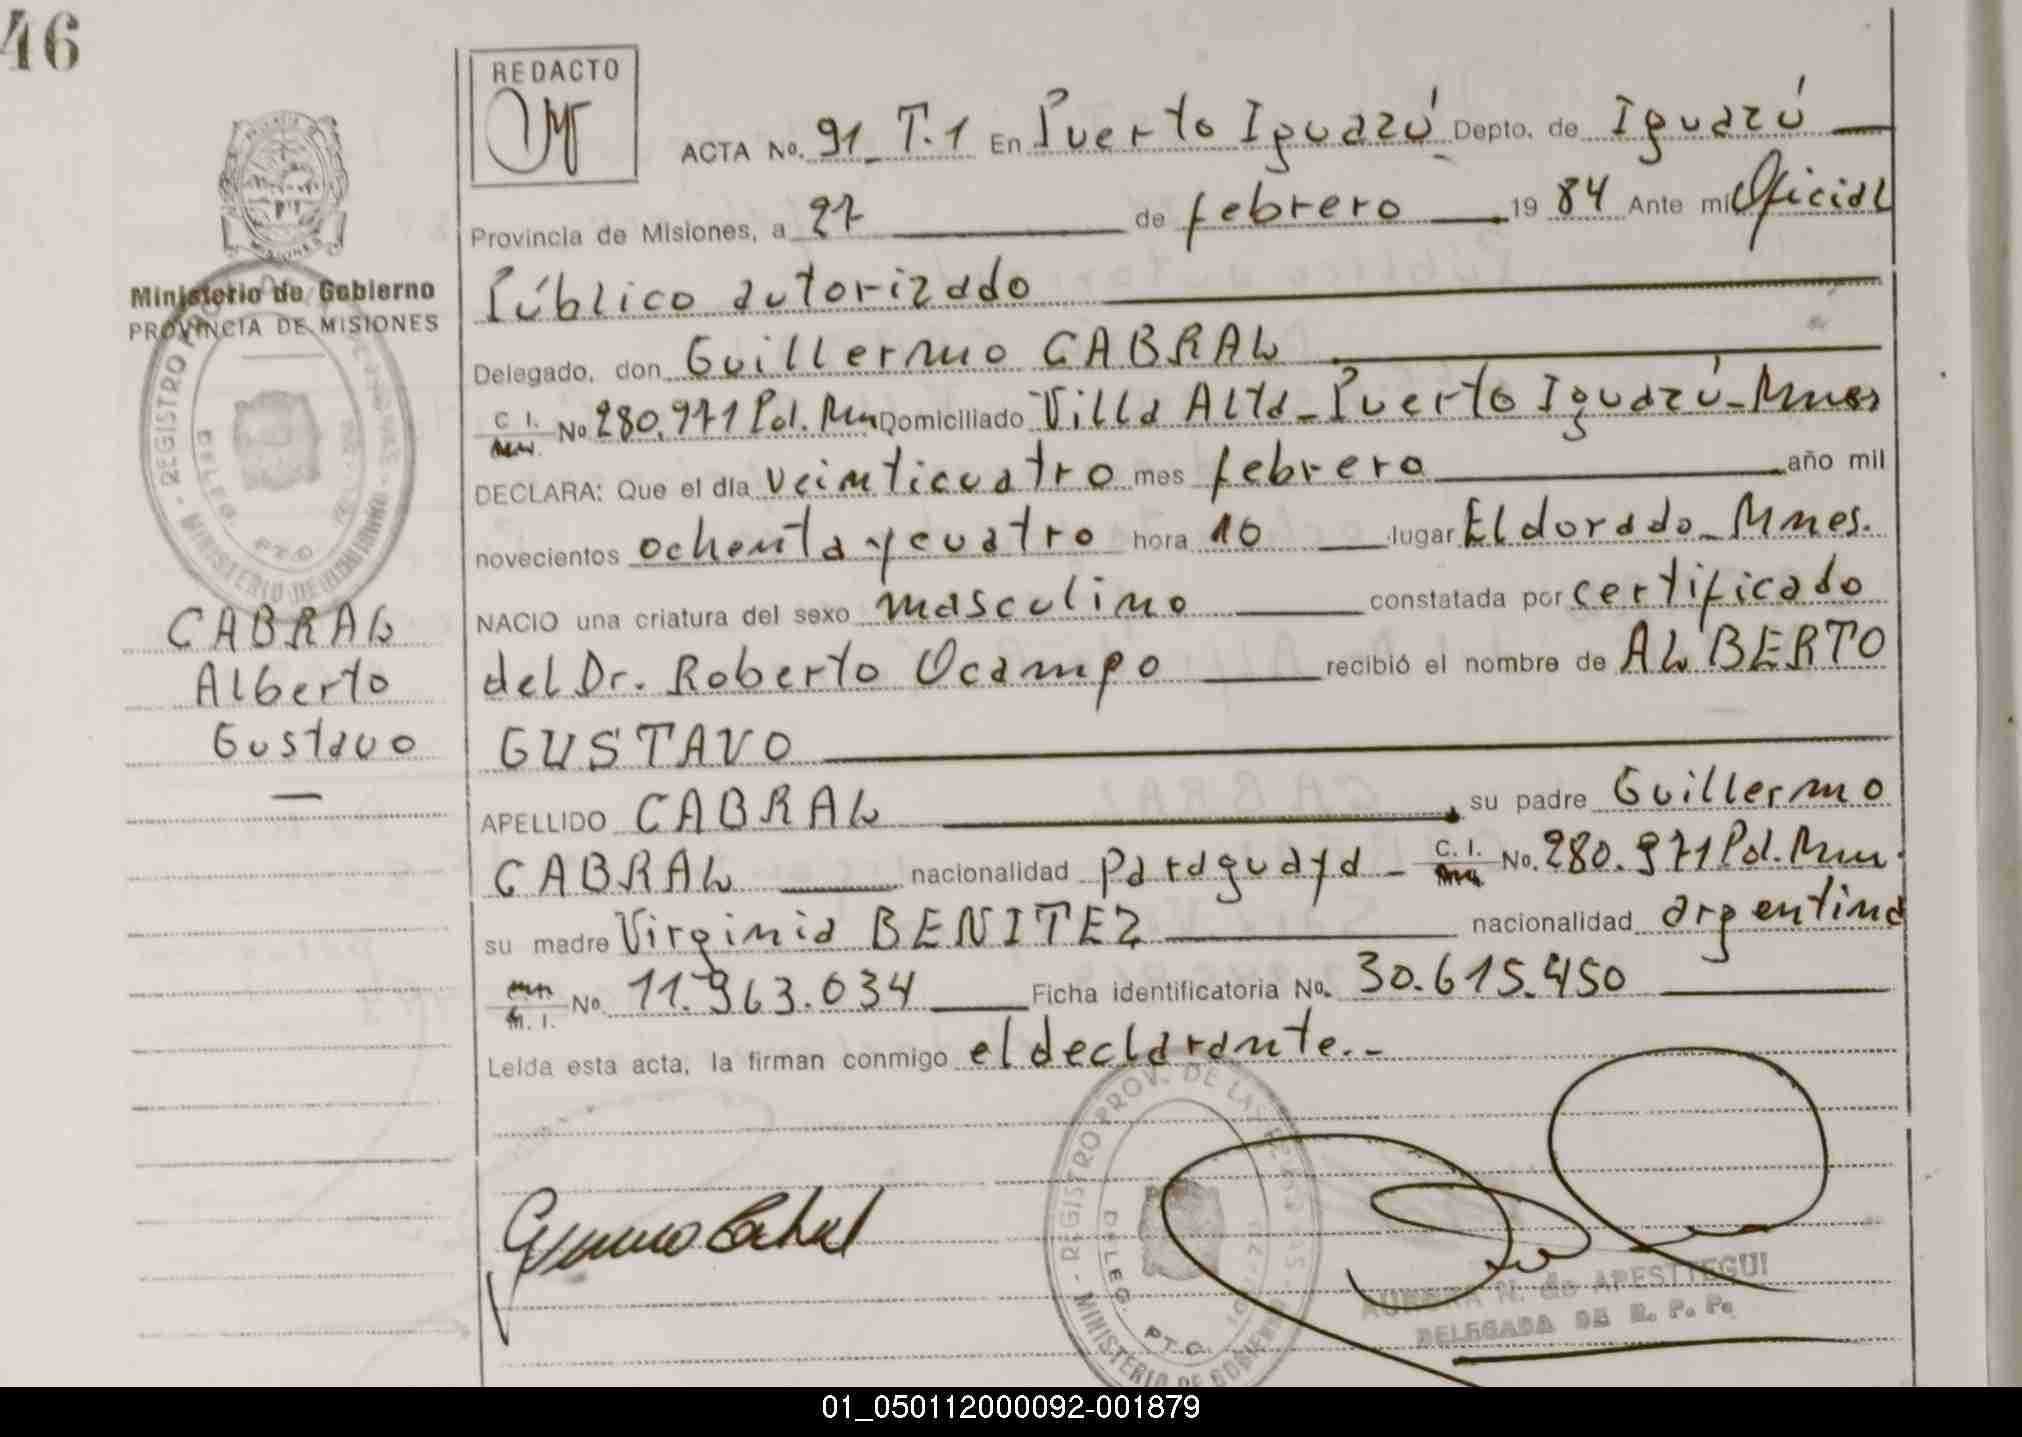 46
REDACTO
ACTA No. 91_T.1 En Puerto Iguazú Depto. de Iguazú
Provincia de Misiones, a 27 de febrero 1984 Ante mi Oficial
Público autorizado
Ministerio de Gobierno
PROVINCIA DE MISIONES
Delegado, don Guillermo CABRAL
C. I. No 280.971 Pol. Mnes Domiciliado Villa Alta_Puerto Iguazú_Mnes
DECLARA: Que el día veinticuatro mes febrero año mil
novecientos ochenta y cuatro hora 10 lugar Eldorado_Mnes.
NACIO una criatura del sexo masculino constatada por certificado
del Dr. Roberto Ocampo recibió el nombre de ALBERTO
GUSTAVO
CABRAL
Alberto
Gustavo
APELLIDO CABRAL su padre Guillermo
CABRAL nacionalidad paraguaya - C. I. No. 280.971 Pol. Mnes
su madre Virginia BENITEZ nacionalidad argentina
M. I. No. 11.963.034 Ficha identificatoria No. 30.615.450
Leída esta acta, la firman conmigo el declarante.-
REGISTRO PROV. DE LAS PERSONAS - MINISTERIO DE GOBIERNO
DELEG. PTO.
AURORA N. de APESTTEGUI
DELEGADA DE R. P. P.
01_050112000092-001879